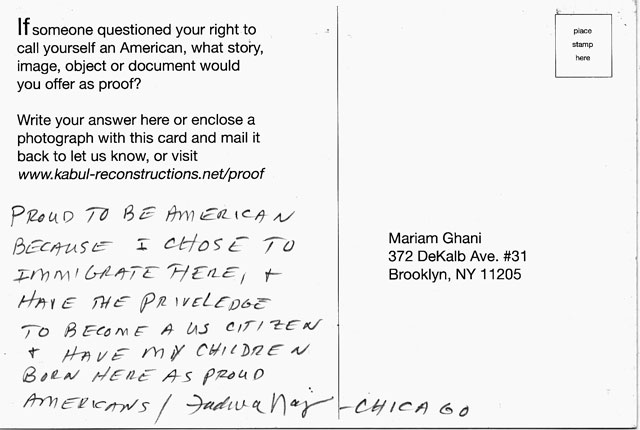 If someone questioned your right to
call yourself an American, what story,
image, object or document would
you offer as proof?
Write your answer here or enclose a
photograph with this card and mail it
back to let us know, or visit
www.kabul-reconstructions.net/proof
PROUD TO BE AMERICAN
BECAUSE I CHOSE TO
IMMIGRATE HERE, +
HAVE THE PRIVELEDGE
TO BECOME A US CITIZEN
+ HAVE MY CHILDREN
BORN HERE AS PROUD
AMERICANS / Fadwa - CHICAGO
place
stamp
here
Mariam Ghani
372 DeKalb Ave. #31
Brooklyn, NY 11205